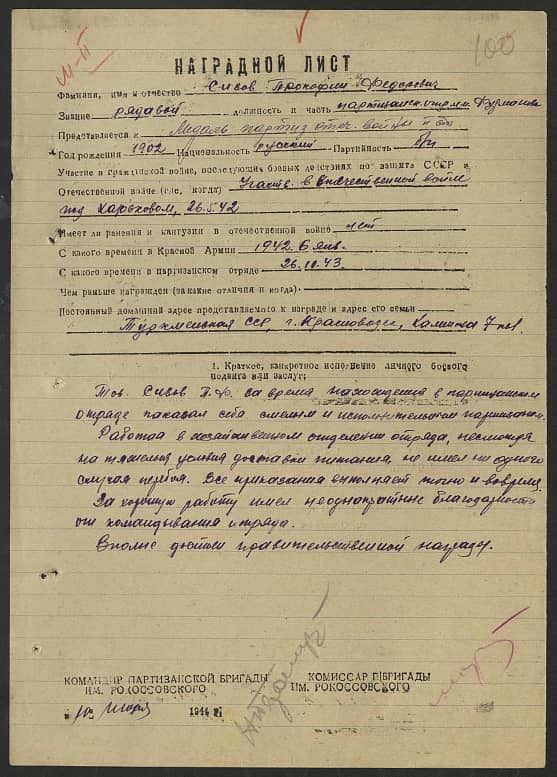 М-П
100
НАГРАДНОЙ ЛИСТ
Фамилия, имя и отчество Сизов Прокофий Федорович
Звание рядовой должность и часть партизан.
Представляется к Медаль партиз отеч. войны II ст
Год рождения 1902 Национальность русский Партийность б/п
Участие в гражданской войне, последующих боевых действиях по защите СССР и
Отечественной войне (где, когда) Участв. в Отечественной войне
под Харьковом, 26.5.42
Имеет ли ранения и контузии в отечественной войне нет
С какого времени в Красной Армии 1942. 6 янв.
С какого времени в партизанском отряде 26.10.43.
Чем раньше награжден (за какие отличия и когда)
Постоянный домашний адрес представляемого к награде и адрес его семьи
Туркменская ССР, г. Красноводск, Калинина 7
1. Краткое, конкретное исполнение личного боевого
подвига или заслуг:
Тов. Сизов П.Ф. за время нахождения в партизанском
отряде показал себя смелым и исполнительным партизаном.
Работая в хозяйственном отделении отряда, несмотря
на тяжелые условия доставки питания, не имел ни одного
случая перебоя. Все приказания выполняет точно и вовремя.
За хорошую работу имел неоднократные благодарность
от командывания отряда.
Вполне достоин правительственной награды.
КОМАНДИР ПАРТИЗАНСКОЙ БРИГАДЫ КОМИССАР П/БРИГАДЫ
ИМ. РОКОССОВСКОГО ИМ. РОКОССОВСКОГО
1944 г.